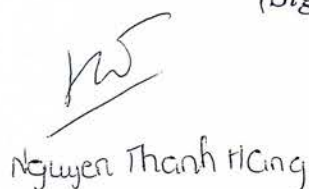 Nguyen Thanh Hang